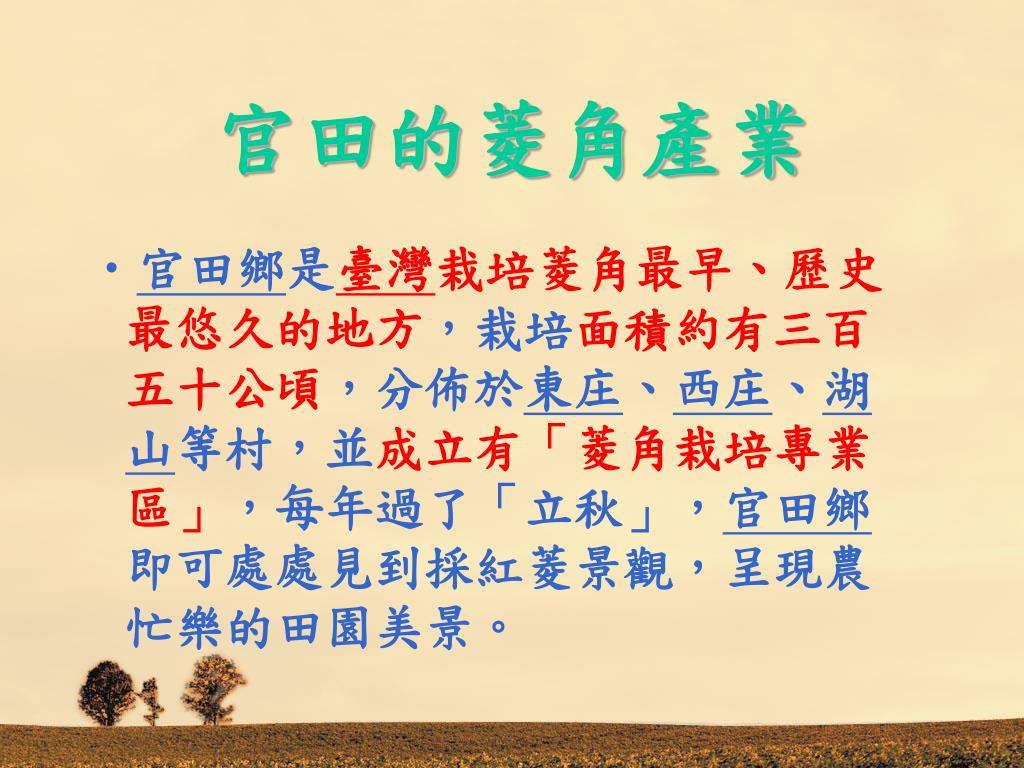 官田的菱角產業
• 官田鄉是臺灣栽培菱角最早、歷史
最悠久的地方，栽培面積約有三百
五十公頃，分佈於東庄、西庄、湖
山等村，並成立有「菱角栽培專業
區」，每年過了「立秋」，官田鄉
即可處處見到採紅菱景觀，呈現農
忙樂的田園美景。